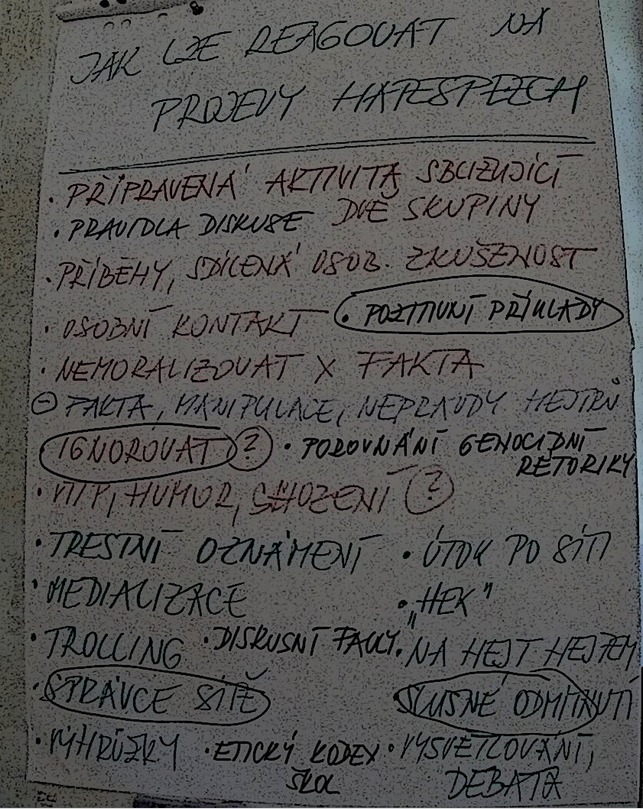 JAK LZE REAGOVAT NA
PROJEVY HATESPEECH
• PŘIPRAVENÁ AKTIVITA SBLIŽUJÍCÍ
DVĚ SKUPINY
• PRAVIDLA DISKUSE
• PŘÍBĚHY, SDÍLENÁ OSOB. ZKUŠENOST
• OSOBNÍ KONTAKT
• POZITIVNÍ PŘÍKLADY
• NEMORALIZOVAT X FAKTA
⊖ FAKTA, MANIPULACE, NEPRAVDY HEJTRŮ
IGNOROVAT ?
• POROVNÁNÍ GENOCIDNÍ
RÉTORIKY
• VTIP, HUMOR, SHOZENÍ ?
• TRESTNÍ OZNÁMENÍ
• ÚTOK PO SÍTI
• MEDIALIZACE
• „HEK"
• TROLLING
• DISKUSNÍ FAULY
• NA HEJT HEJTEM
• SPRÁVCE SÍTĚ
• SLUŠNÉ ODMÍTNUTÍ
• VÝHRŮŽKY
• ETICKÝ KODEX
ŠKOL
• VYSVĚTLOVÁNÍ,
DEBATA